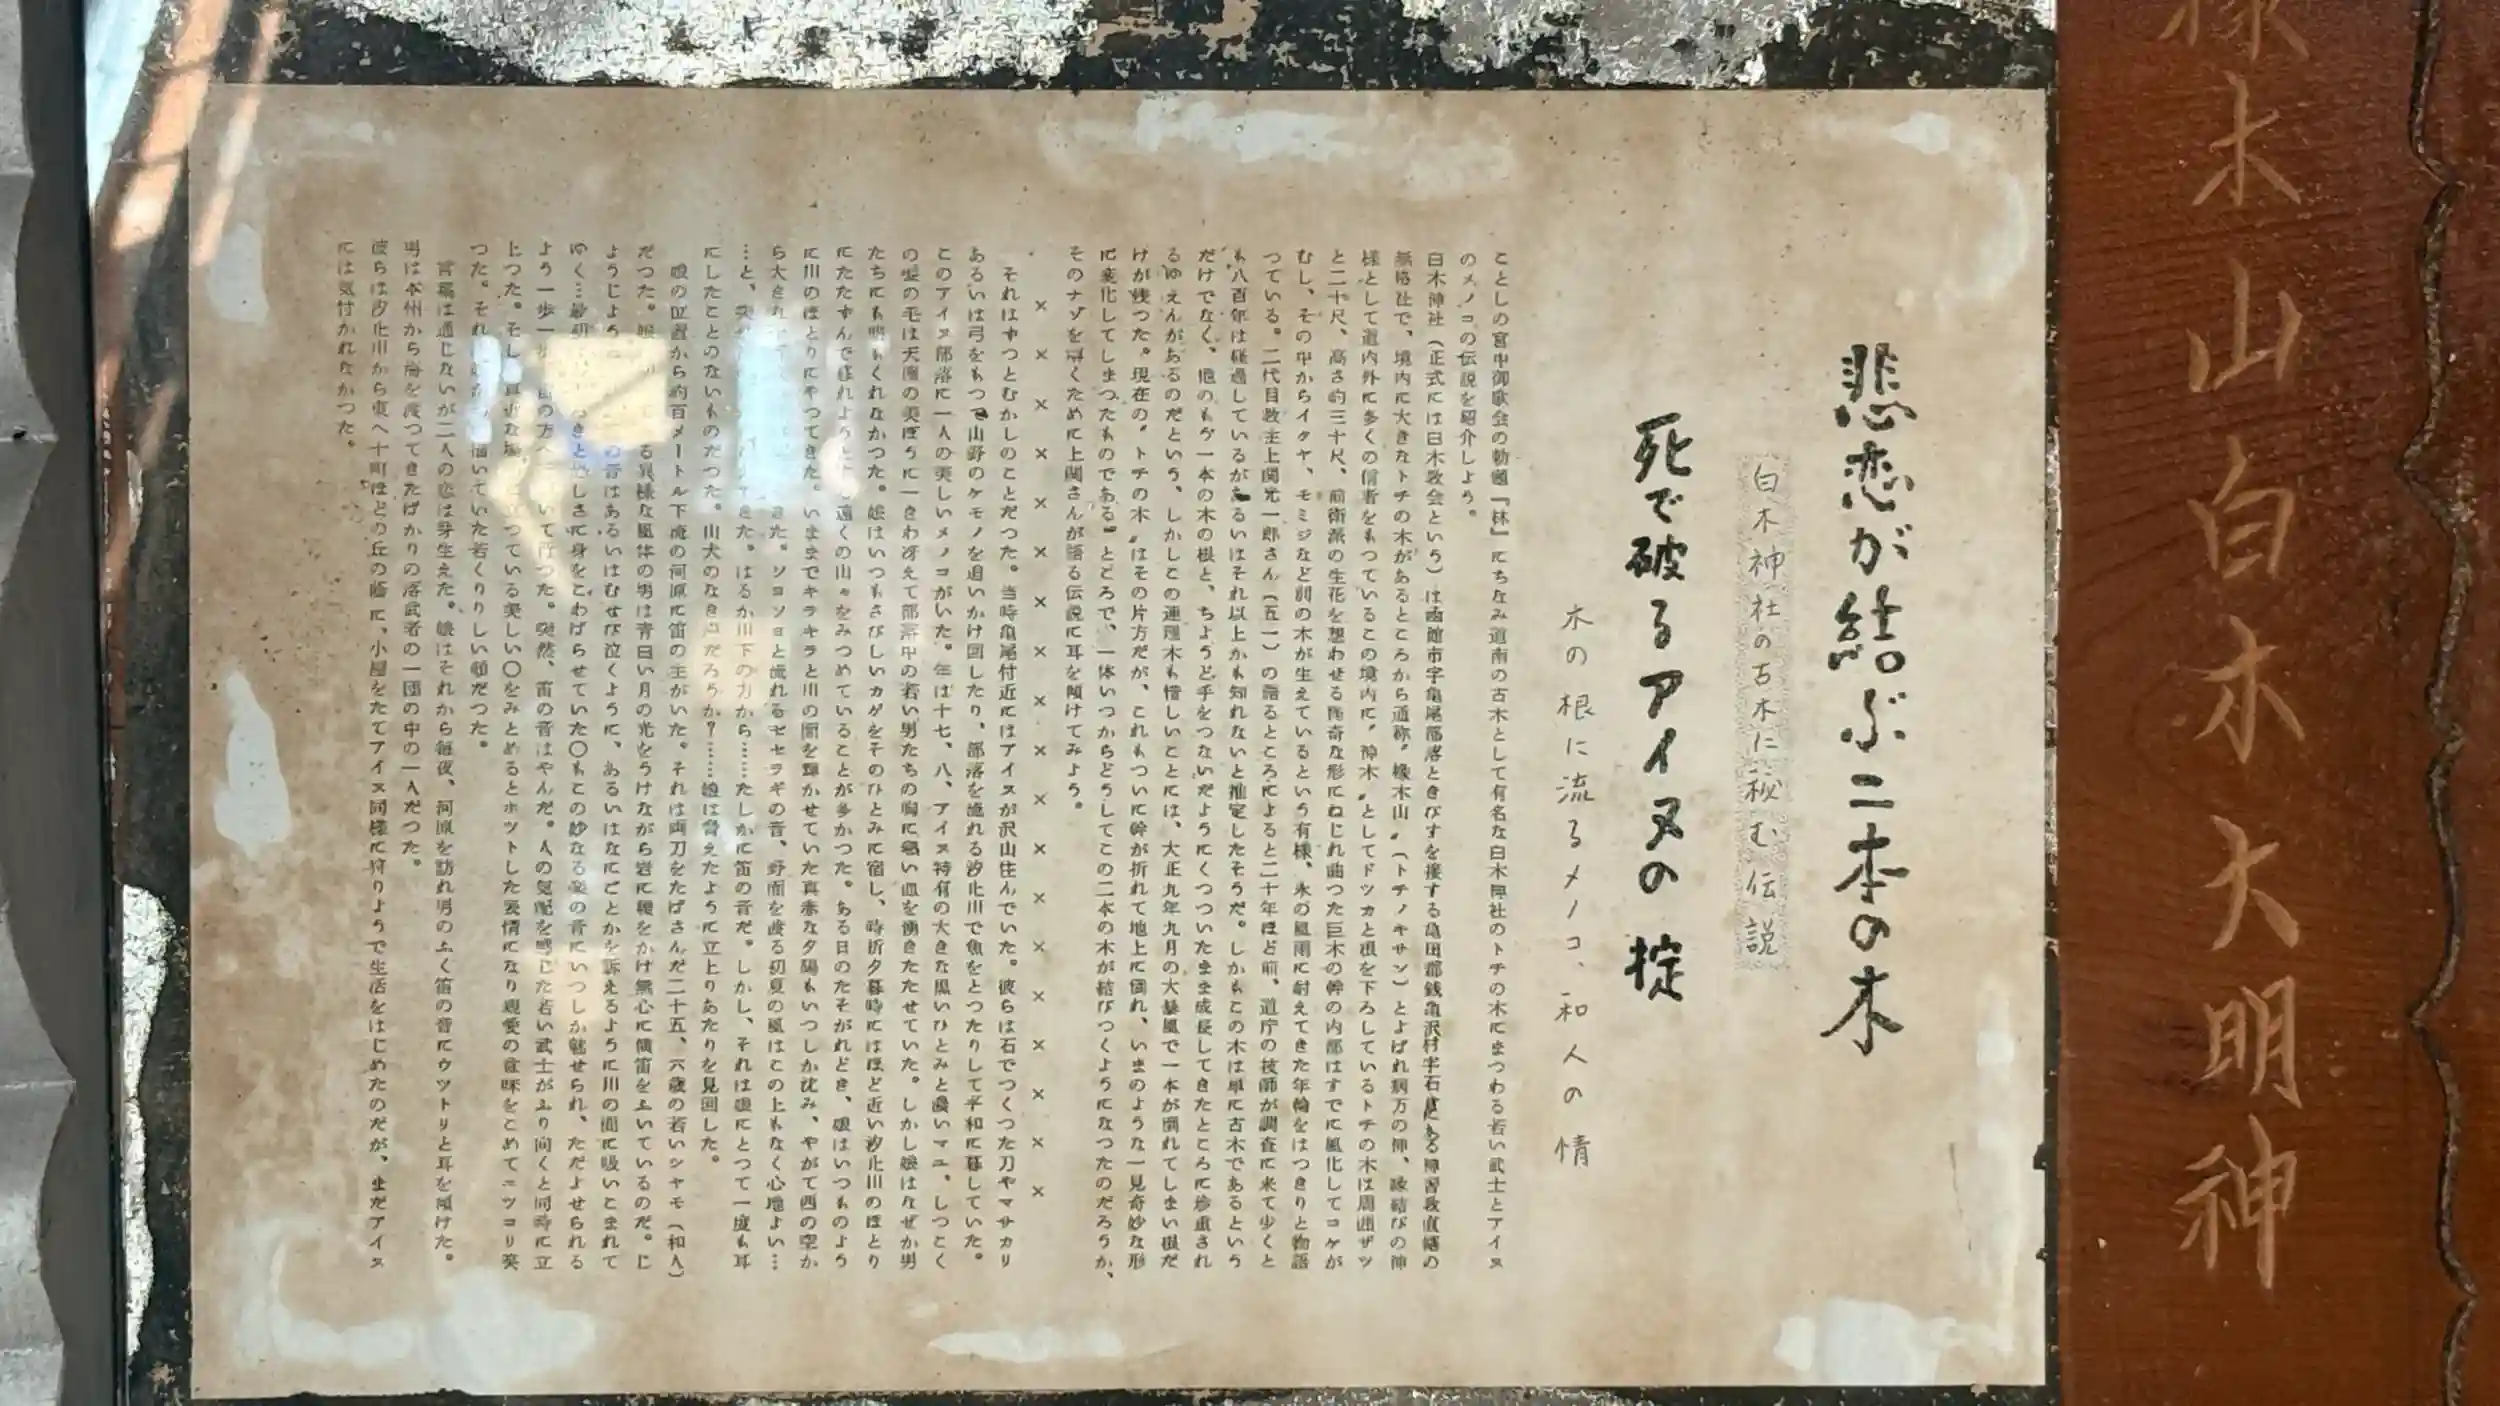 橡木山白木大明神
悲恋が結ぶ二本の木
白木神社の古木に秘む伝説
死で破るアイヌの掟
木の根に流るメノコ、和人の情
ことしの宮中御歌会の勅題「林」にちなみ道南の古木として有名な白木神社のトチの木にまつわる若い武士とアイヌ
のメノコの伝説を紹介しよう。
白木神社（正式には白木教会という）は函館市字亀尾部落ときびすを接する亀田郡銭亀沢村字石倉にある禅習教直轄の
無格社で、境内に大きなトチの木があるところから通称〝橡木山〟（トチノキサン）とよばれ病万の神、縁結びの神
様として道内外に多くの信者をもつているこの境内に〝神木〟としてドツカと根を下ろしているトチの木は周囲ザツ
と二十尺、高さ約三十尺、前衛派の生花を想わせる怪奇な形にねじれ曲つた巨木の幹の内部はすでに風化してコケが
むし、その中からイタヤ、モミジなど別の木が生えているという有様、氷の風雨に耐えてきた年輪をはつきりと物語
つている。二代目教主上関光一郎さん（五一）の語るところによると二十年ほど前、道庁の技師が調査に来て少くと
も八百年は経過しているがあるいはそれ以上かも知れないと推定したそうだ。しかもこの木は単に古木であるという
だけでなく、他のもう一本の木の根と、ちようど手をつないだようにくつついたまま成長してきたところに珍重され
るゆえんがあるのだという、しかしこの連理木も惜しいことには、大正九年九月の大暴風で一本が倒れてしまい根だ
けが残つた。現在の〝トチの木〟はその片方だが、これもついに幹が折れて地上に倒れ、いまのような一見奇妙な形
に変化してしまつたものである〟ところで、一体いつからどうしてこの二本の木が結びつくようになつたのだろうか、
そのナゾを解くために上関さんが語る伝説に耳を傾けてみよう。
××××××××××××××××××
それはずつとむかしのことだつた。当時亀尾付近にはアイヌが沢山住んでいた。彼らは石でつくつた刀やマサカリ
あるいは弓をもつて山野のケモノを追いかけ回したり、部落を流れる汐止川で魚をとつたりして平和に暮していた。
このアイヌ部落に一人の美しいメノコがいた。年は十七、八、アイヌ特有の大きな黒いひとみと濃いマユ、しつこく
の髪の毛は天性の美ぼうに一きわ冴えて部落中の若い男たちの胸に熱い血を湧きたたせていた。しかし娘はなぜか男
たちにも鳴もくれなかつた。娘はいつもさびしいカゲをそのひとみに宿し、時折夕暮時にはほど近い汐止川のほとり
にたたずんで暮れようとする遠くの山々をみつめていることが多かつた。ある日のたそがれどき、娘はいつものよう
に川のほとりにやつてきた。いままでキラキラと川の面を輝かせていた真赤な夕陽もいつしか沈み、やがて西の空か
ら大きな きた。ソヨソヨと流れるセセラギの音、野面を渡る初夏の風はこの上もなく心地よい…
…と、突 きた。はるか川下の方から……たしかに笛の音だ。しかし、それは娘にとつて一度も耳
にしたことのないものだつた。山犬のなき声だろうか？……娘は脅えたように立上りあたりを見回した。
娘の位置から約百メートル下流の河原に笛の主がいた。それは両刀をたばさんだ二十五、六歳の若いシャモ（和人）
だつた。娘 る異様な風体の男は青白い月の光をうけながら岩に腰をかけ無心に横笛をふいているのだ。じ
ようじよう の音はあるいはむせび泣くように、あるいはなにごとかを訴えるように川の面に吸いこまれて
ゆく…最初 きと恐しさに身をこわばらせていた〇もこの妙なる楽の音にいつしか魅せられ、ただよせられる
よう一歩一歩笛の方へ いて行つた。突然、笛の音はやんだ。人の気配を感じた若い武士がふり向くと同時に立
上つた。そし 真近な場 立つている美しい〇をみとめるとホツトした表情になり親愛の意味をこめてニツコリ笑
つた。それ 描いていた若くりりしい顔だつた。
言葉は通じないが二人の恋は芽生えた。娘はそれから毎夜、河原を訪れ男のふく笛の音にウツトリと耳を傾けた。
男は本州から海を渡つてきたばかりの落武者の一団の中の一人だつた。
彼らは汐止川から東へ十町ほどの丘の陰に、小屋をたてアイヌ同様に狩りようで生活をはじめたのだが、まだアイヌ
には気付かれなかつた。